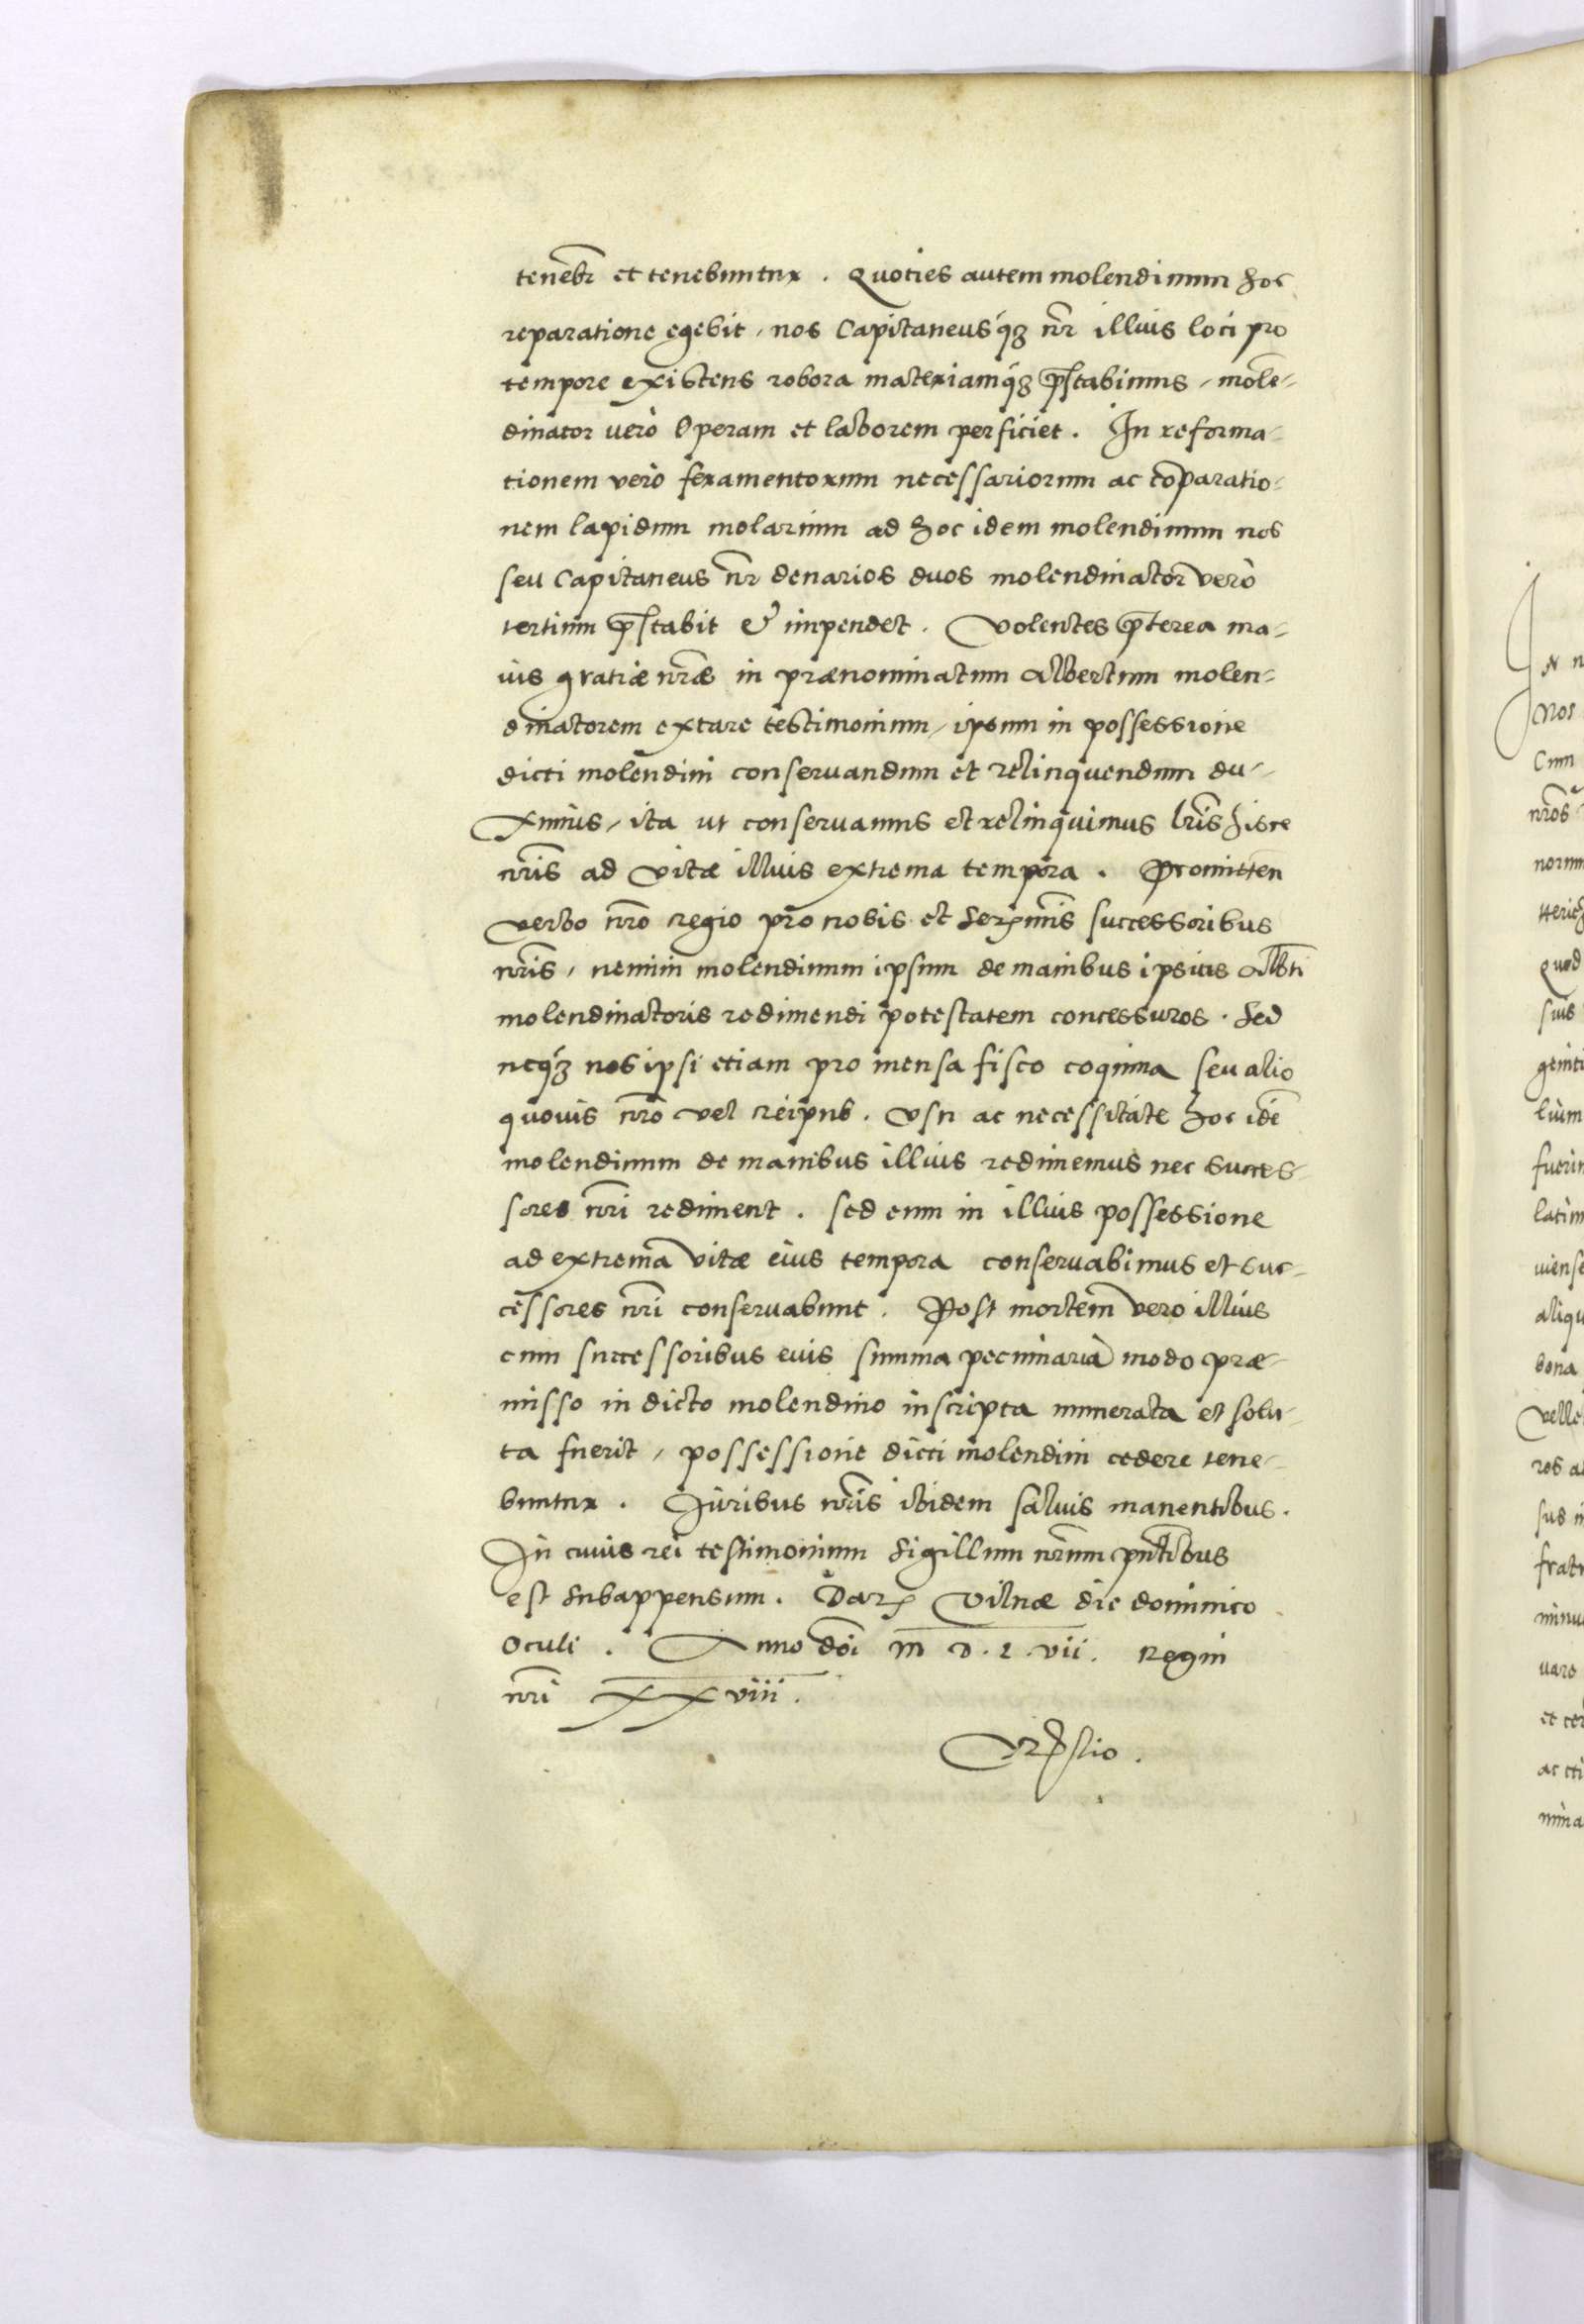 tenebr̄ et tenebuntur . Quoties autem molendinum hoc
reparatione egebit, nos Capitaneusq́ꝫ nr̄ illius loci pro
tempore existens robora materiamq́ꝫ p̄stabimus, molē-
dinator verò Operam et laborem perficiet . In reforma-
tionem verò feramentorum necessariorum ac cōparatio-
nem lapidum molarium ad hoc idem molendinum nos
seu Capitaneus nr̄ denarios duos molendinator verò
tertium p̄stabit & impendet . Volentes p̄terea ma-
ius gratiæ nr̄æ in prænominatum Albertum molen-
dinatorem extare testimonium, ipsum in possessione
dicti molendini conservandum et relinquendum du-
ximus, ita ut conservamus et relinquimus lr̄is hisce
nr̄is ad vitæ illius extrema tempora . Promitten
verbo nr̄o regio pro nobis et Serm̄is successoribus
nr̄is, nemini molendinum ipsum de manibus ipsius Alb̄ti
molendinatoris redimendi potestatem concessuros . Sed
neq́ꝫ nos ipsi etiam pro mensa fisco coquina seu alio
quovis nr̄o vel reipub . usu ac necessitate hoc idē
molendinum de manibus illius redimemus nec succes-
sores nr̄i rediment . sed eum in illius possessione
ad extrema vitæ eius tempora conservabimus et suc-
cessores nr̄i conservabunt . Post mortem vero illius
cum successoribus eius summa pecuniaria modo præ-
misso in dicto molendino inscripta numerata et solu-
ta fuerit, possessione dicti molendini cedere tene-
buntur . Juribus nr̄is ibidem salvis manentibus .
In cuius rei testimonium Sigillum nr̄um pn̄tibus
est subappensum . Dat Vilnæ die dominico
Oculi . Anno dn̄i M D . L . vii . Regni
nr̄i XXviii .